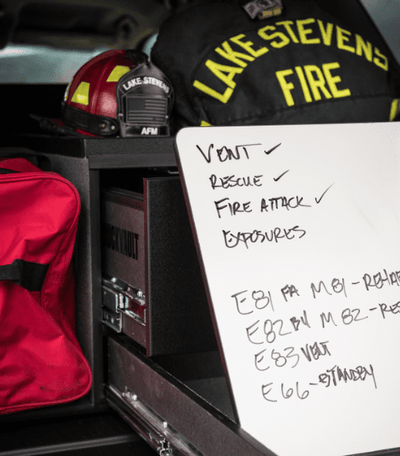 LAKE STEVENS
FIRE
LAKE STEVENS
AFM
VENT ✓
RESCUE ✓
FIRE ATTACK ✓
EXPOSURES
E81 FA M81-REHAB
E82 BU M82-RES
E83 VENT
E66-STANDBY